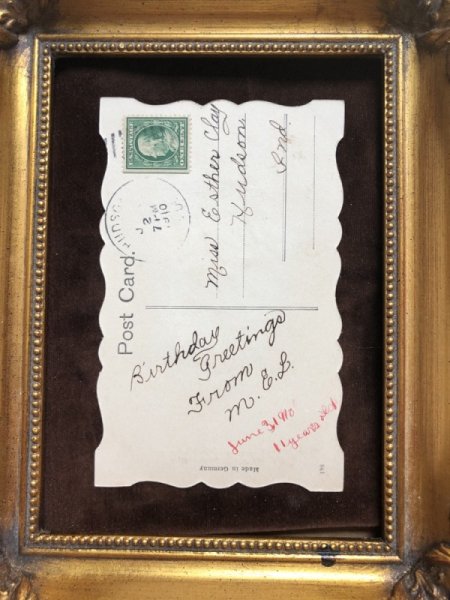 Post Card
HUDSON
2
1910
U.S. POSTAGE
Birthday
Greetings
From
M. E. L.
June 3 1910
11 years old
Miss Esther Clay
Hudson
Ind
Made in Germany